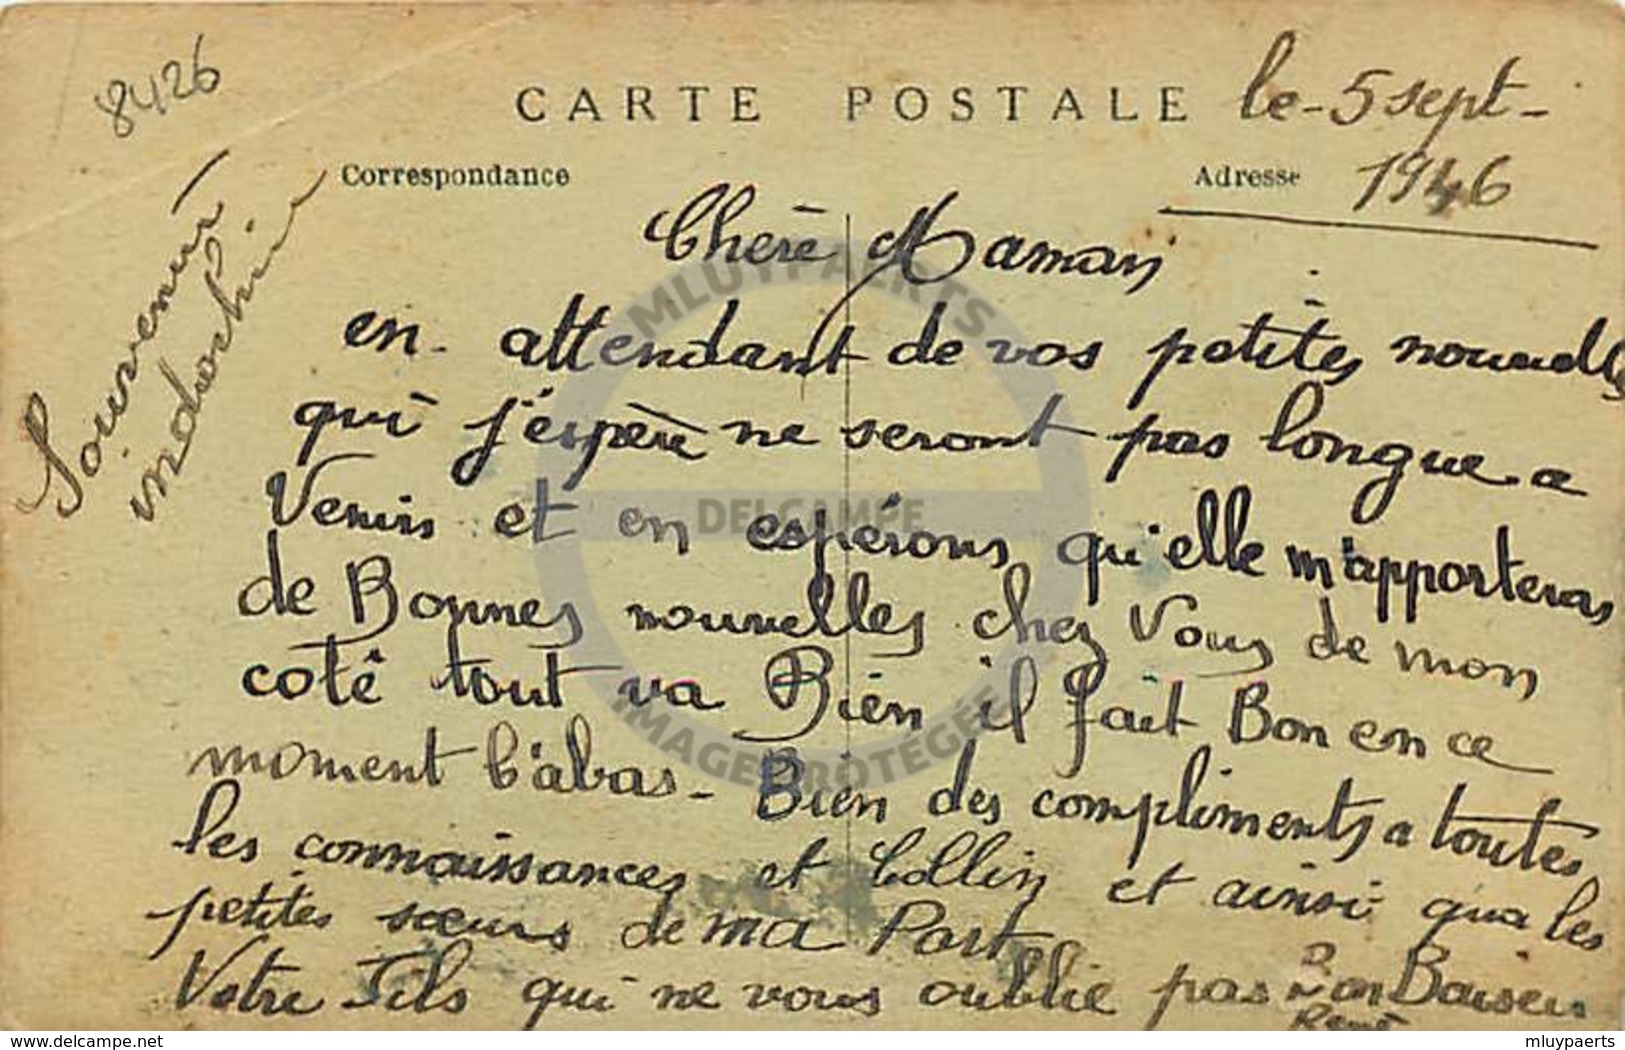 8426
CARTE POSTALE
le-5 sept-
1946
Correspondance
Adresse
Souvenir
indochine
Chère Maman
en attendant de vos petites nouvelles
qui j'espère ne seront pas longue a
Venir et en espérons qu'elle m'apporteras
de Bonnes nouvelles chez Vous de mon
coté tout va Bien il fait Bon en ce
moment l'abas- Bien des compliments a toutes
les connaissances et Collin et ainsi qua les
petites sœurs de ma Part
Votre Fils qui ne vous oublie pas Bon Baisers
René
MLUYPAERTS
DELCAMPE
IMAGE PROTÉGÉE
delcampe.net
mluypaerts